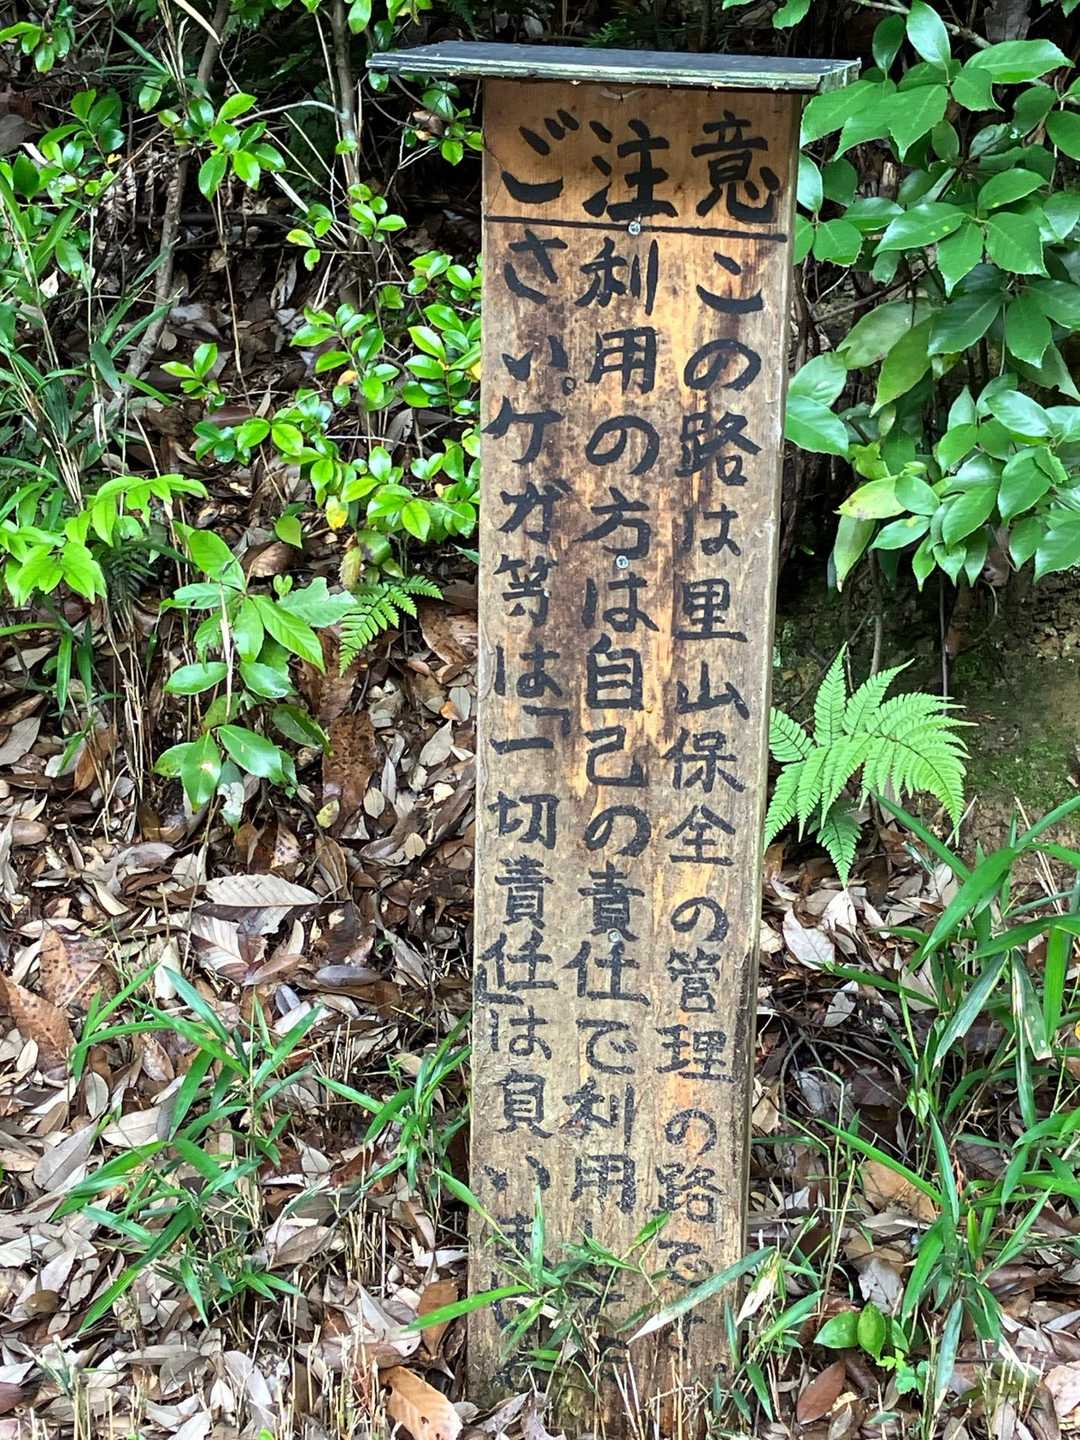 ご注意
この路は里山保全の管理の路です
利用の方は自己の責任で利用して
さい。ケガ等は「一切責任」は負いません